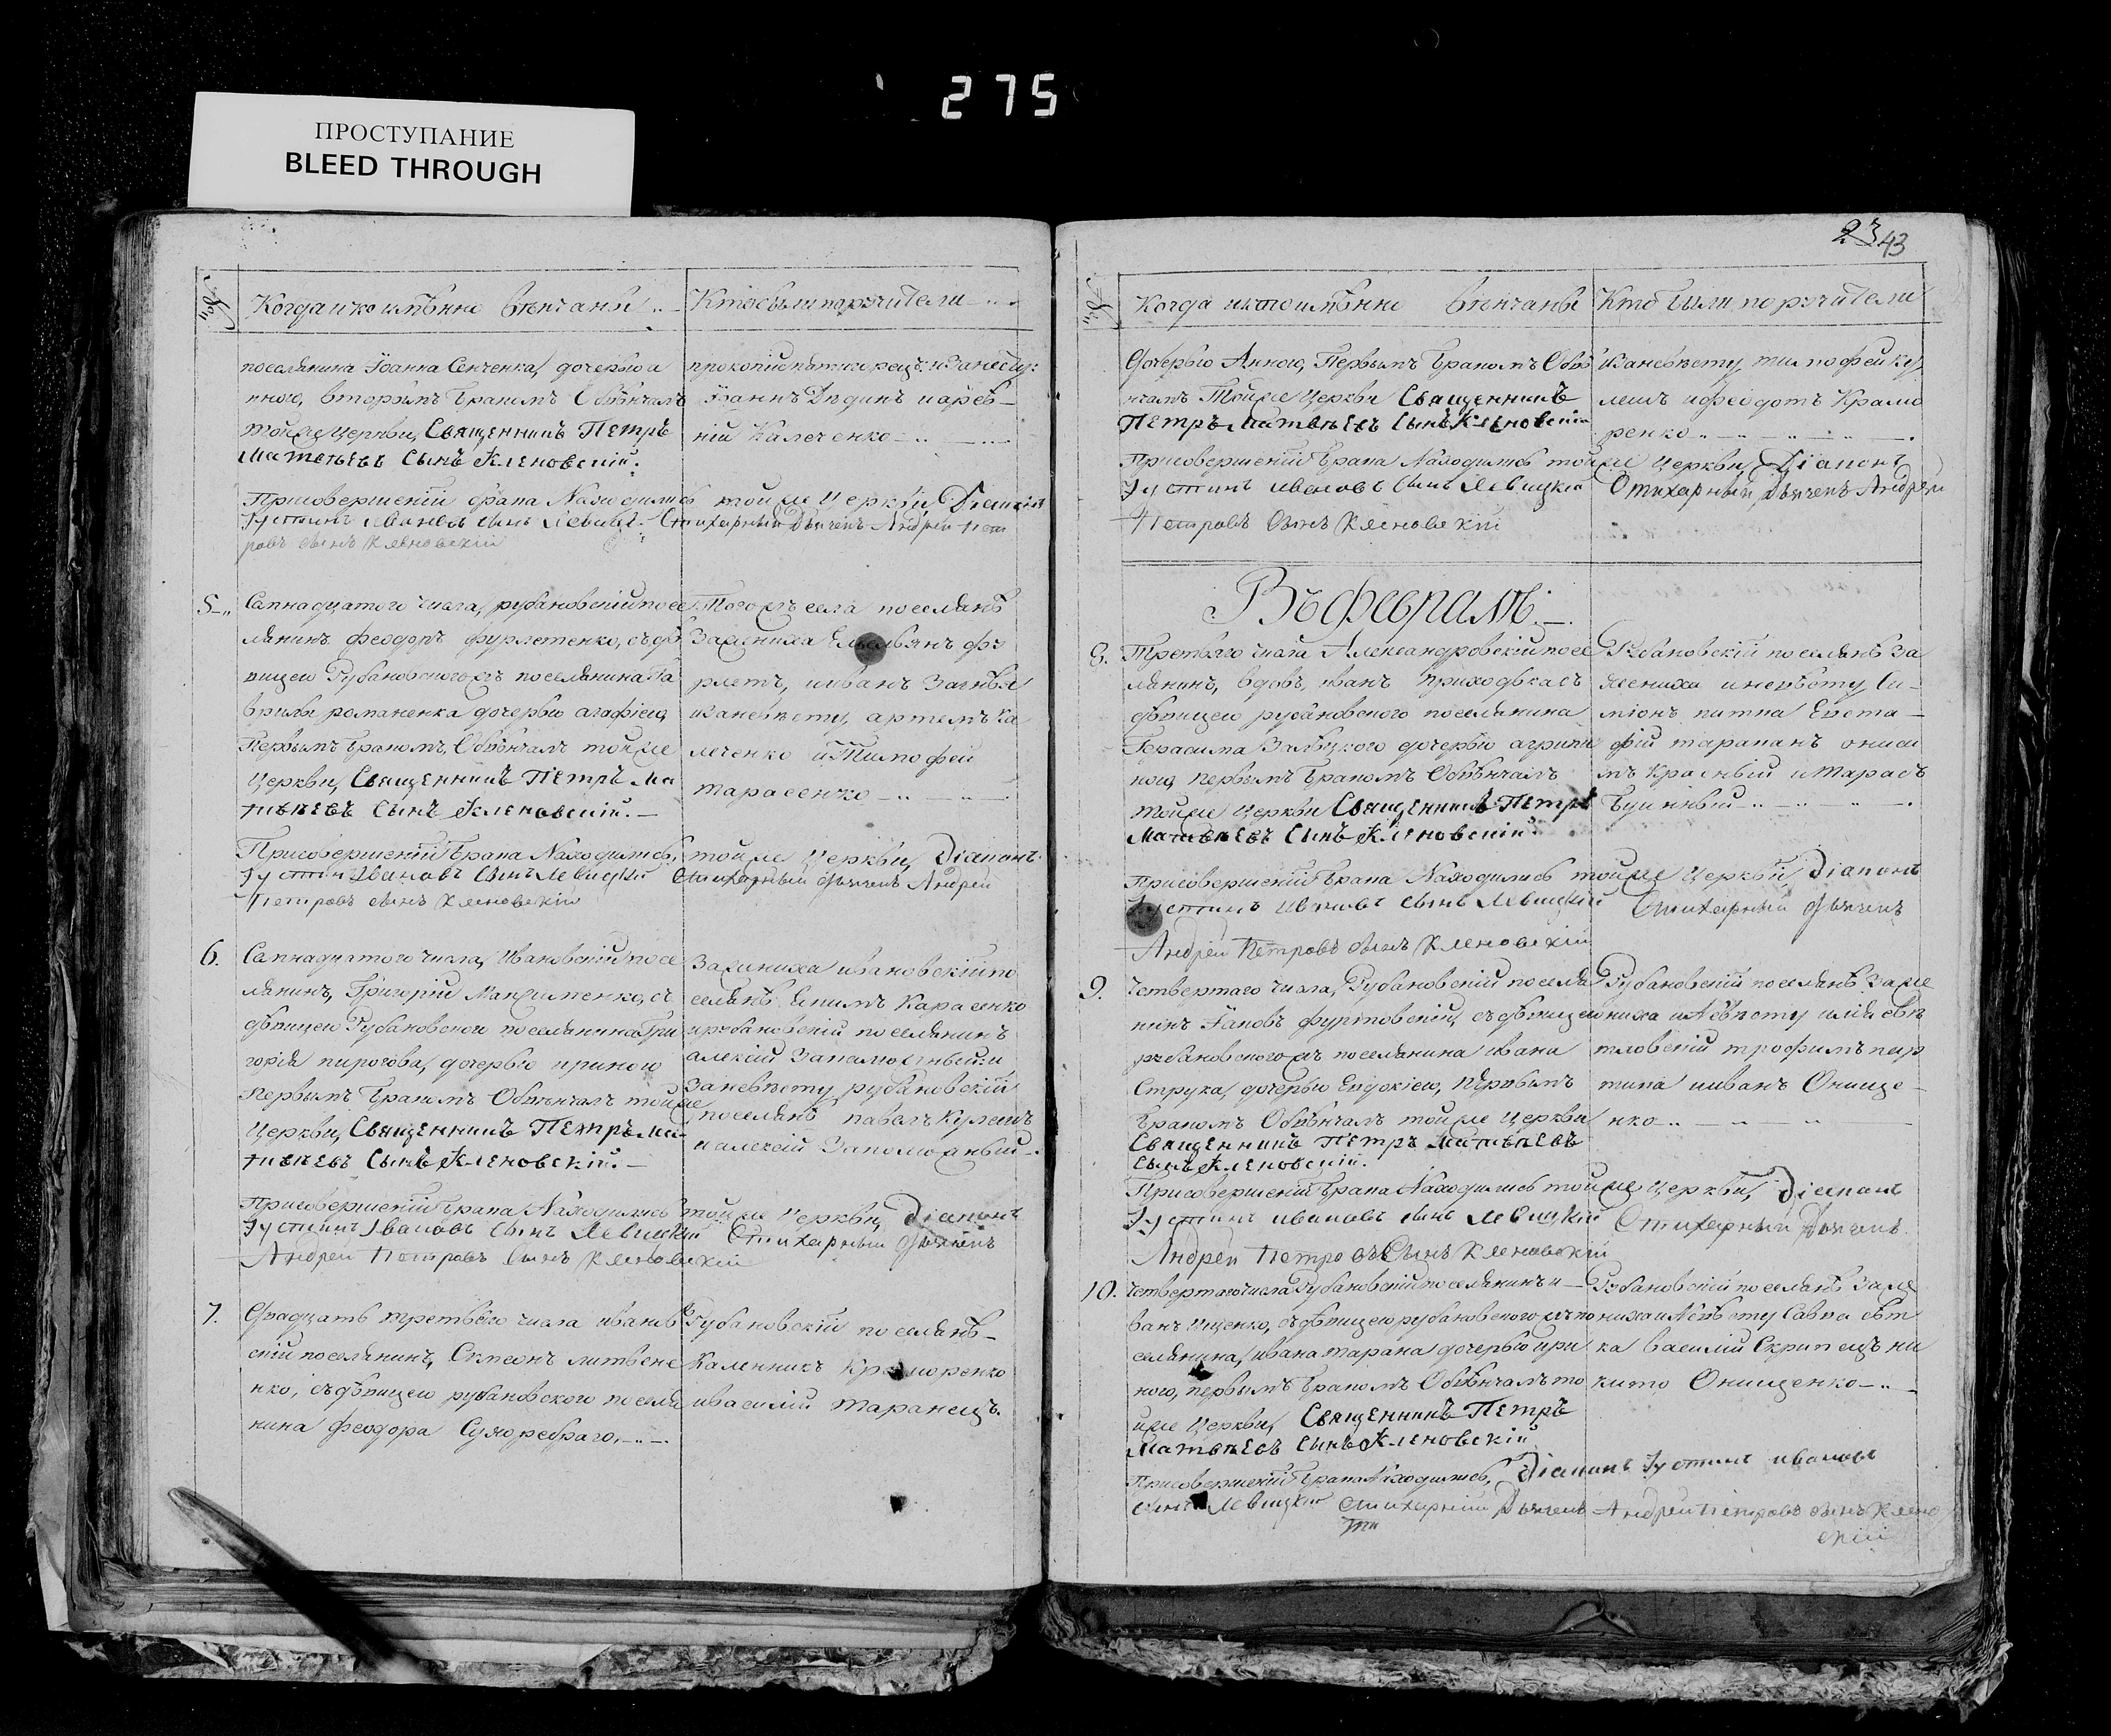 275
ПРОСТУПАНИЕ
BLEED THROUGH
Когда и ко имѣнно вѣнчаны
Кто были поручители
поселянина Іоанна Сенченка, дочерью а
нною, вторымъ бракомъ Обвѣнчалъ
тойже Церкви, Священникъ Петръ
Матвѣевъ Сынъ Кленовскій.
прокопій
Іваннъ Дидинъ
ній Калеченко
При совершеніи брака Находились тойже Церкви Діаконъ
Іустинъ Ивановъ сынъ Левицкі Стихарный Дьячекъ Андрей Пет
ровъ сынъ Кленовскій
5
Сапнадцатого числа, рубановскій посе
лянинъ Феодоръ Фурлетенко, съ дѣ
вицею Рубановского жъ поселянина Га
врилы романенка дочерью агафіею,
Первымъ бракомъ, Обвѣнчалъ тойже
Церкви, Священникъ Петръ Ма
твѣевъ Сынъ Кленовскій.
Того жъ села поселянѣ
За жениха Емельянъ Фу
рлетъ, и иванъ Загнѣй
и За невѣсту, артемъ Ка
леченко и Тимофей
тарасенко
При совершеніи брака Находились, тойже Церкви, Діаконъ
Іустин Ивановъ Сынъ Левицкій Стихарный дьячекъ Андрей
Петровъ сынъ Кленовскій
6.
Сапнадцатого числа, Ивановскій посе
лянинъ, Григорій Максименко, съ
дѣвицею Рубановского поселянина Гри
горія пирогова, дочерью ириною
Первымъ бракомъ Обвѣнчалъ тойже
Церкви, Священникъ Петръ Ма
твѣевъ Сынъ Кленовскій.
За жениха ивановскій по
селянѣ Екимъ Карасенко
и рубановскій поселянинъ
алексій Запалюжный и
За невѣсту, рубановскій
поселянѣ павелъ Кулешъ
и алексій Запоможный
При совершеніи брака Находились тойже Церкви, Діаконъ
Іустинъ Івановъ Сынъ Левицкій Стихарный дьячекъ
Андрей Петровъ Сынъ Кленовскій
7.
Двадцать третьего числа иванов
скій поселянинъ, Симеонъ литвине
нко, съ дѣвицею рубановского посели
нина феодора Сухоребраго,
Рубановскій поселянѣ
Каленникъ Краморенко
и василій таранецъ.
23 43
Когда и кто имѣнно вѣнчаны
Кто были поручители
Дочерью Анною, Первымъ бракомъ Обвѣ
нчалъ Тойже Церкви Священникъ
Петръ Матвѣевъ Сынъ Кленовскій
и За невѣсту, тимофей Ку
лешъ и феодотъ Крамо
ренко
При совершеніи брака Находились тойже Церкви, Діаконъ
Іустинъ Ивановъ Сынъ Левицкій Стихарный Дьячекъ Андрей
Петровъ Сынъ Кленовскій
Въ февралѣ.
8.
Третьяго числа Александровскій посе
лянинъ, вдовъ, иванъ приходька съ
дѣвицею рубановского поселянина
Герасима Залѣцкого дочерью агрипи
ною, первымъ бракомъ Обвѣнчалъ
тойже Церкви Священникъ Петръ
Матвѣевъ Сынъ Кленовскій.
Рубановскій поселянѣ За
жениха и невѣсту, Си
міонъ питна Евста
фій тарапанъ ониси
мъ Красный и Тарасъ
При совершеніи брака Находились тойже Церкви, Діаконъ
Іустинъ Ивановъ Сынъ Левицкій Стихарный дьячекъ
Андрей Петровъ сынъ Кленовскій
9.
Четвертаго числа, Рубановскій поселя
нинъ Іаковъ фуртовскій, съ дѣвицею
рубановского жъ поселянина ивана
Струка, дочерью Евдокіею, Первымъ
бракомъ Обвѣнчалъ тойже Церкви
Священникъ Петръ Матвѣевъ
Сынъ Кленовскій.
Рубановскій поселянѣ За же
ниха и Невѣсту илія свѣ
тловскій трофимъ пар
тика и иванъ Онище
нко
При совершеніи брака Находились тойже Церкви, Діаконъ
Іустинъ ивановъ сынъ Левицкій Стихарный Дьячекъ
Андрей Петровъ Сынъ Кленовскій
10.
Четвертаго числа Рубановскій поселянинъ и
ванъ Ищенко, съ дѣвицею рубановского жъ по
селянина, ивана тарана дочерью ири
ною, первымъ бракомъ Обвѣнчалъ то
йже Церкви, Священникъ Петръ
Матвѣевъ Сынъ Кленовскій
Рубановскій поселянѣ За же
ниха и Невѣсту Савка свѣт
ка василій Скрипецъ ни
кито Онищенко
При совершеніи брака Находились, Діаконъ Іустинъ ивановъ
сынъ Левицкій стихарный Дьячекъ Андрей Петровъ сынъКлено
скій